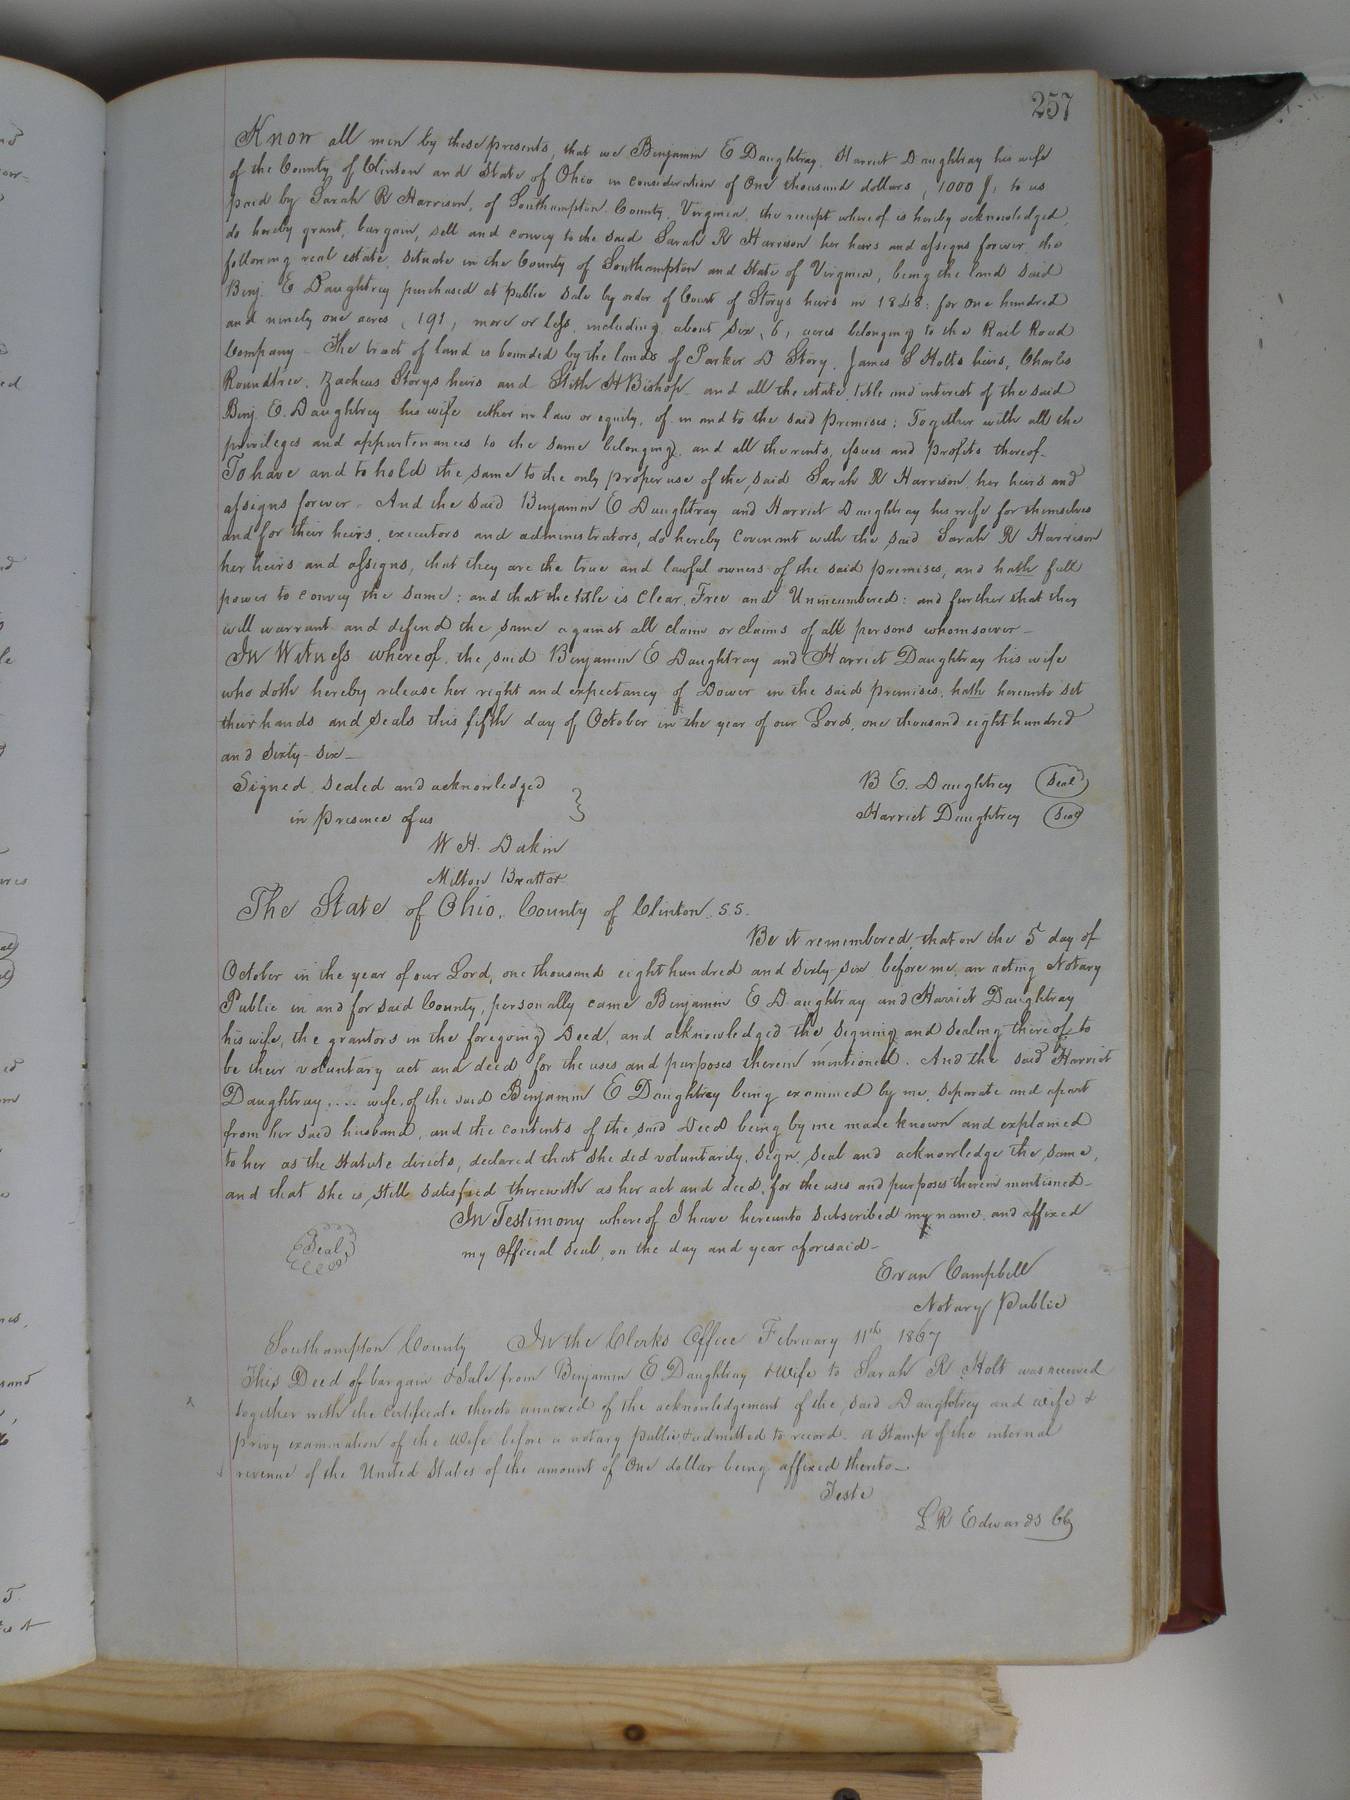 257
Know all men by these presents, that we Benjamin E Daughtray, Harriet Daughtray his wife
of the County of Clinton and State of Ohio in consideration of One thousand dollars, (1000 $) to us
paid by Sarah R Harrison, of Southampton County, Virginia, the receipt whereof is hereby acknowledged,
do hereby grant, bargain, sell and convey to the said Sarah R Harrison her heirs and assigns forever, the
following real estate, situate in the County of Southampton and State of Virginia, being the land said
Benj. E Daughtrey purchased at public sale by order of Court of Storys heirs in 1848: for one hundred
and ninety one acres, (191) more or less, including about six (6) acres belonging to the Rail Road
Company - The tract of land is bounded by the lands of Parker D Story, James S Holts heirs, Charles
Roundtree, Zacheus Storys heirs and Stith H Bishop - and all the estate, title and interest of the said
Benj. E. Daughtrey his wife either in law or equity, of, in and to the said premises: Together with all the
privileges and appurtenances to the same belonging, and all the rents, issues and profits thereof-
To have and to hold the same to the only proper use of the said Sarah R Harrison, her heirs and
assigns forever - And the said Benjamin E Daughtray and Harriet Daughtray his wife for themselves
and for their heirs, executors and administrators, do hereby covenant with the said Sarah R Harrison
her heirs and assigns, that they are the true and lawful owners of the said premises, and hath full
power to convey the same: and that the title is Clear, Free and Unincumbered: and further that they
will warrant and defend the same against all claim or claims of all persons whomsoever -
In Witness whereof, the said Benjamin E Daughtray and Harriet Daughtray his wife
who doth hereby release her right and expectancy of Dower in the said premises, hath hereunto set
their hands and seals this fifth day of October in the year of our Lord, one thousand eight hundred
and sixty-six -
Signed, sealed and acknowledged
in presence of us
B E. Daughtrey Seal
Harriet Daughtrey Seal
W H. Dakin
Milton
The State of Ohio, County of Clinton, S.S.
Be it remembered, that on the 5 day of
October in the year of our Lord, one thousand eight hundred and sixty-six before me, an acting Notary
Public in and for said County, personally came Benjamin E Daughtray and Harriet Daughtray
his wife, the grantors in the foregoing Deed, and acknowledged the signing and sealing thereof to
be their voluntary act and deed for the uses and purposes therein mentioned. And the said Harriet
Daughtray .... wife, of the said Benjamin E Daughtray being examined by me, separate and apart
from her said husband, and the contents of the said Deed being by me made known and explained
to her as the statute directs, declared that she did voluntarily, sign, seal and acknowledge the same,
and that she is still satisfied therewith as her act and deed, for the uses and purposes therein mentioned-
In Testimony whereof I have hereunto subscribed my name, and affixed
Seal
my Official seal, on the day and year aforesaid-
Evan Campbell
Notary Public
Southampton County In the Clerks Office February 11th 1867
This Deed of bargain & Sale from Benjamin E Daughtray & Wife to Sarah R Holt was received
together with the certificate thereto annexed of the acknowledgement of the said Daughtrey and wife &
privy examination of the Wife before a notary public & admitted to record. a stamp of the internal
revenue of the United States of the amount of One dollar being affixed thereto-
Teste
L R Edwards Clk